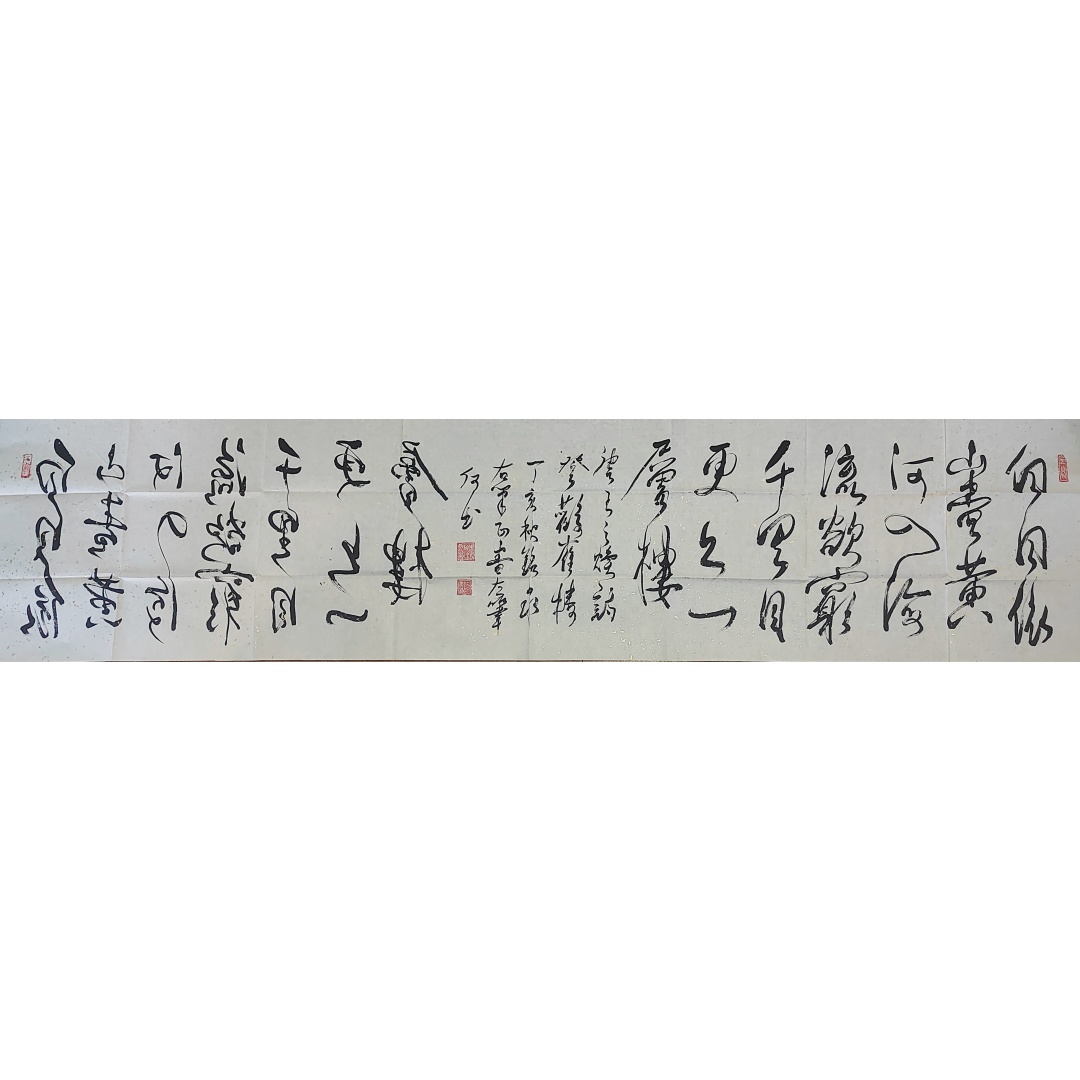 白日依
山盡黄
河入海
流欲窮
千里目
更上一
層樓
唐王之渙詩
登鸛雀樓
丁亥秋
右筆正書左筆
反書
層樓
更上一
千里目
流欲窮
河入海
山盡黄
白日依